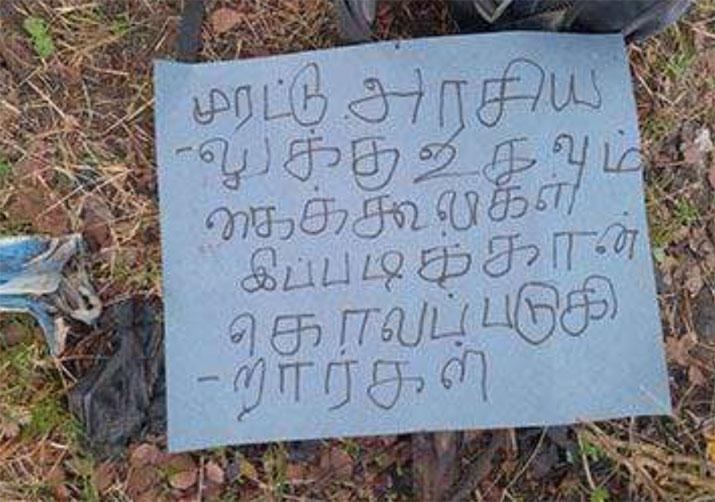 முரட்டு அரசிய
-லுக்கு உதவும்
கைக்கூலிகள்
இப்படித்தான்
கொலப்படுகி
-றார்கள்